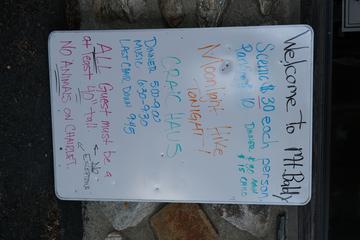 Welcome to Mt. Baldy
Scenic $30 each person
Parking 10 Dinner $40
$15
Moonlight Hike
TONIGHT!
CRAIG HAUS
DINNER 5:00-9:00
MUSIC 6:30-9:30
LAST CHAIR DOWN 9:45
ALL Guest must be a
at least 40" tall ← NO
EXCEPTIONS
NO ANIMALS ON CHAIRLIFT.